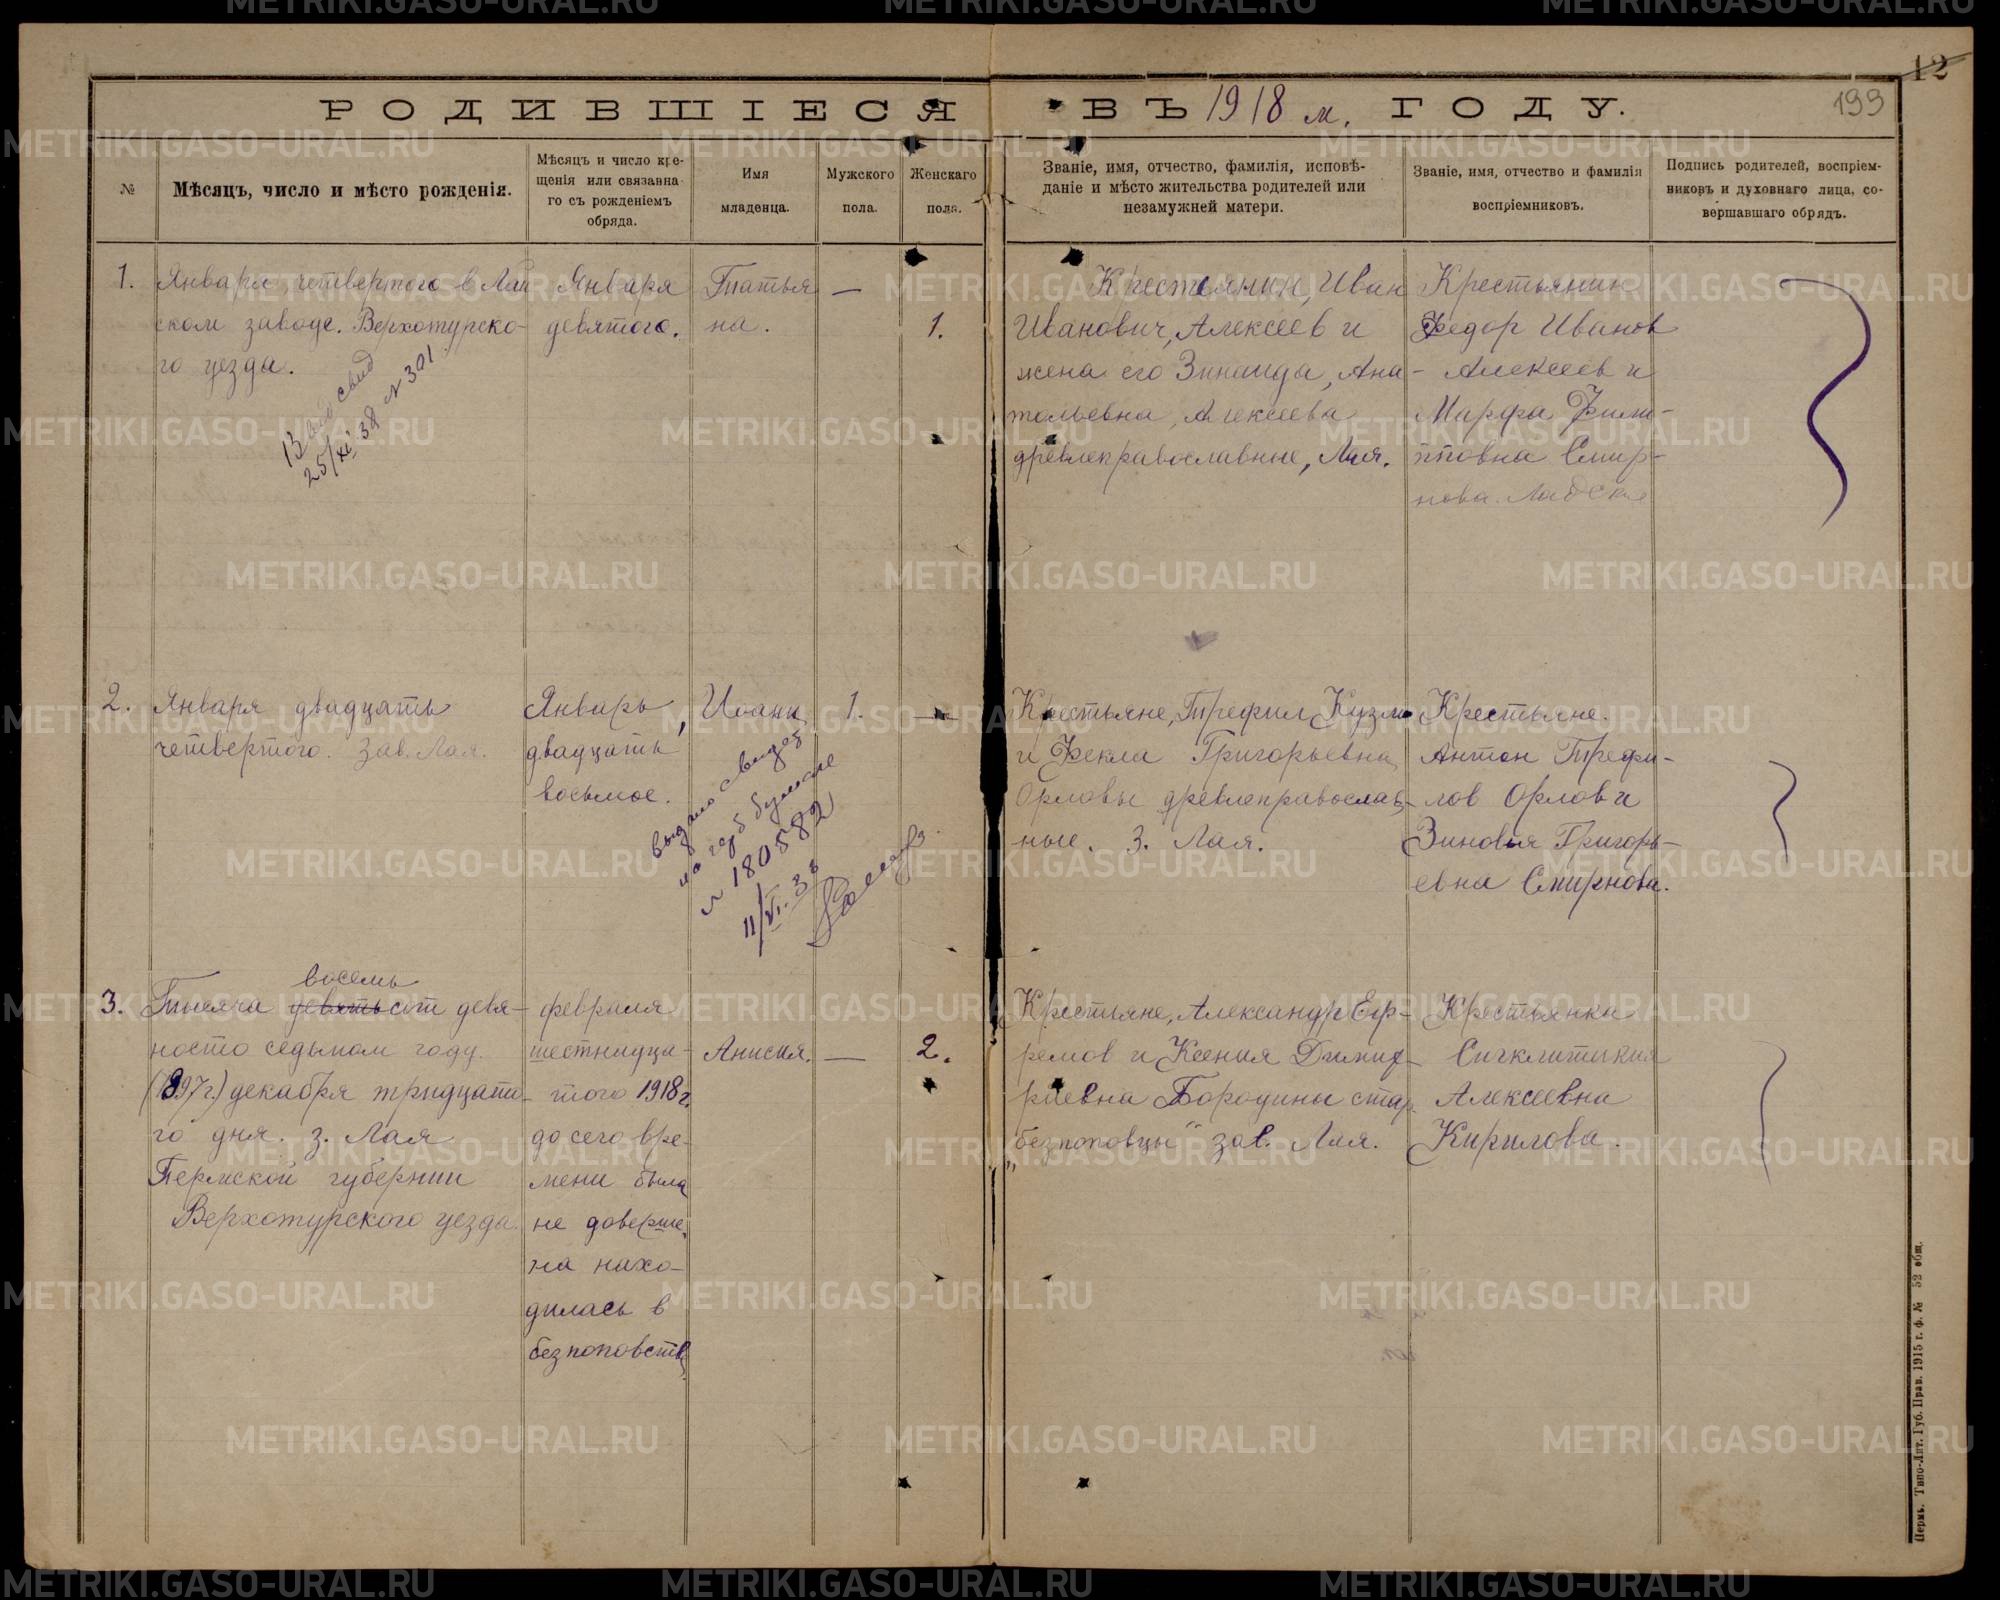 РОДИВШІЕСЯ ВЪ 1918 м. ГОДУ.
12
199
№
Мѣсяцъ, число и мѣсто рожденія.
Мѣсяцъ и число кре-
щенія или связанна-
го съ рожденіемъ
обряда.
Имя
младенца.
Мужского
пола.
Женскаго
пола.
Званіе, имя, отчество, фамилія, исповѣ-
даніе и мѣсто жительства родителей или
незамужней матери.
Званіе, имя, отчество и фамилія
воспріемниковъ.
Подпись родителей, воспріем-
никовъ и духовнаго лица, со-
вершавшаго обрядъ.
1.
Января четвертого в Лай
ском заводе. Верхотурско-
го уезда.
свид
25/XI 38 № 301
Января
девятого.
Татья
на.
—
1.
Крестьянин, Иван
Иванович, Алексеев и
жена его Зинаида, Ана-
тольевна, Алексеева
древлеправославные, Лая.
Крестьянин
Федор Иванов
Алексеев и
Марфа Фили-
пповна Смир-
нова.
2.
Января двадцать
четвертого. Зав. Лая.
Январь
двадцать
восьмое.
Иоанн
1.
—
выдано свидет
на герб бумаге
№ 180582
11/VI.38
Крестьяне, Трефил Кузм
и Фекла Григорьевна
Орловы древлеправослав-
ные. З. Лая.
Крестьяне.
Антон Трефи-
лов Орлов и
Зиновья Григорь-
евна Смирнова.
3.
восемь
Тысяча девятьсот девя-
носто седьмом году.
(1897г.) декабря тридцато-
го дня. з. Лая
Пермской губернии
Верхотурского уезда.
февраля
шестнадца-
того 1918г.
до сего вре-
мени была
не доверше-
на нахо-
дилась в
безпоповств
Анисия.
—
2.
Крестьяне, Александр Еф-
ремов и Ксения Димит-
риевна Бородины стар.
„безпоповцы“ зав. Лая.
Крестьянки
Синклитикия
Алексеевна
Кирилова.
Пермь. Типо-Лит. Губ. Прав. 1915 г. ф. № 52 общ.
METRIKI.GASO-URAL.RU